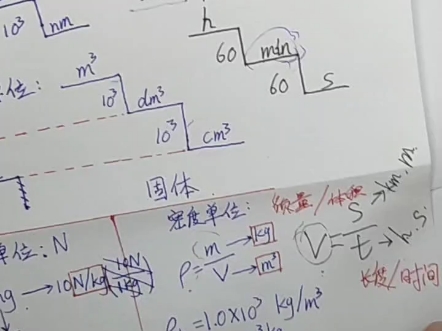 10³ nm
h
60 min
60 s
位: m³
10³ dm³
10³ cm³
固体
密度单位: 质量/体积
单位: N
m → kg
ρ = — V → m³
V = S/t
S → km. m
t → h. s
长度/时间
→ 10N/kg
=1.0×10³ kg/m³